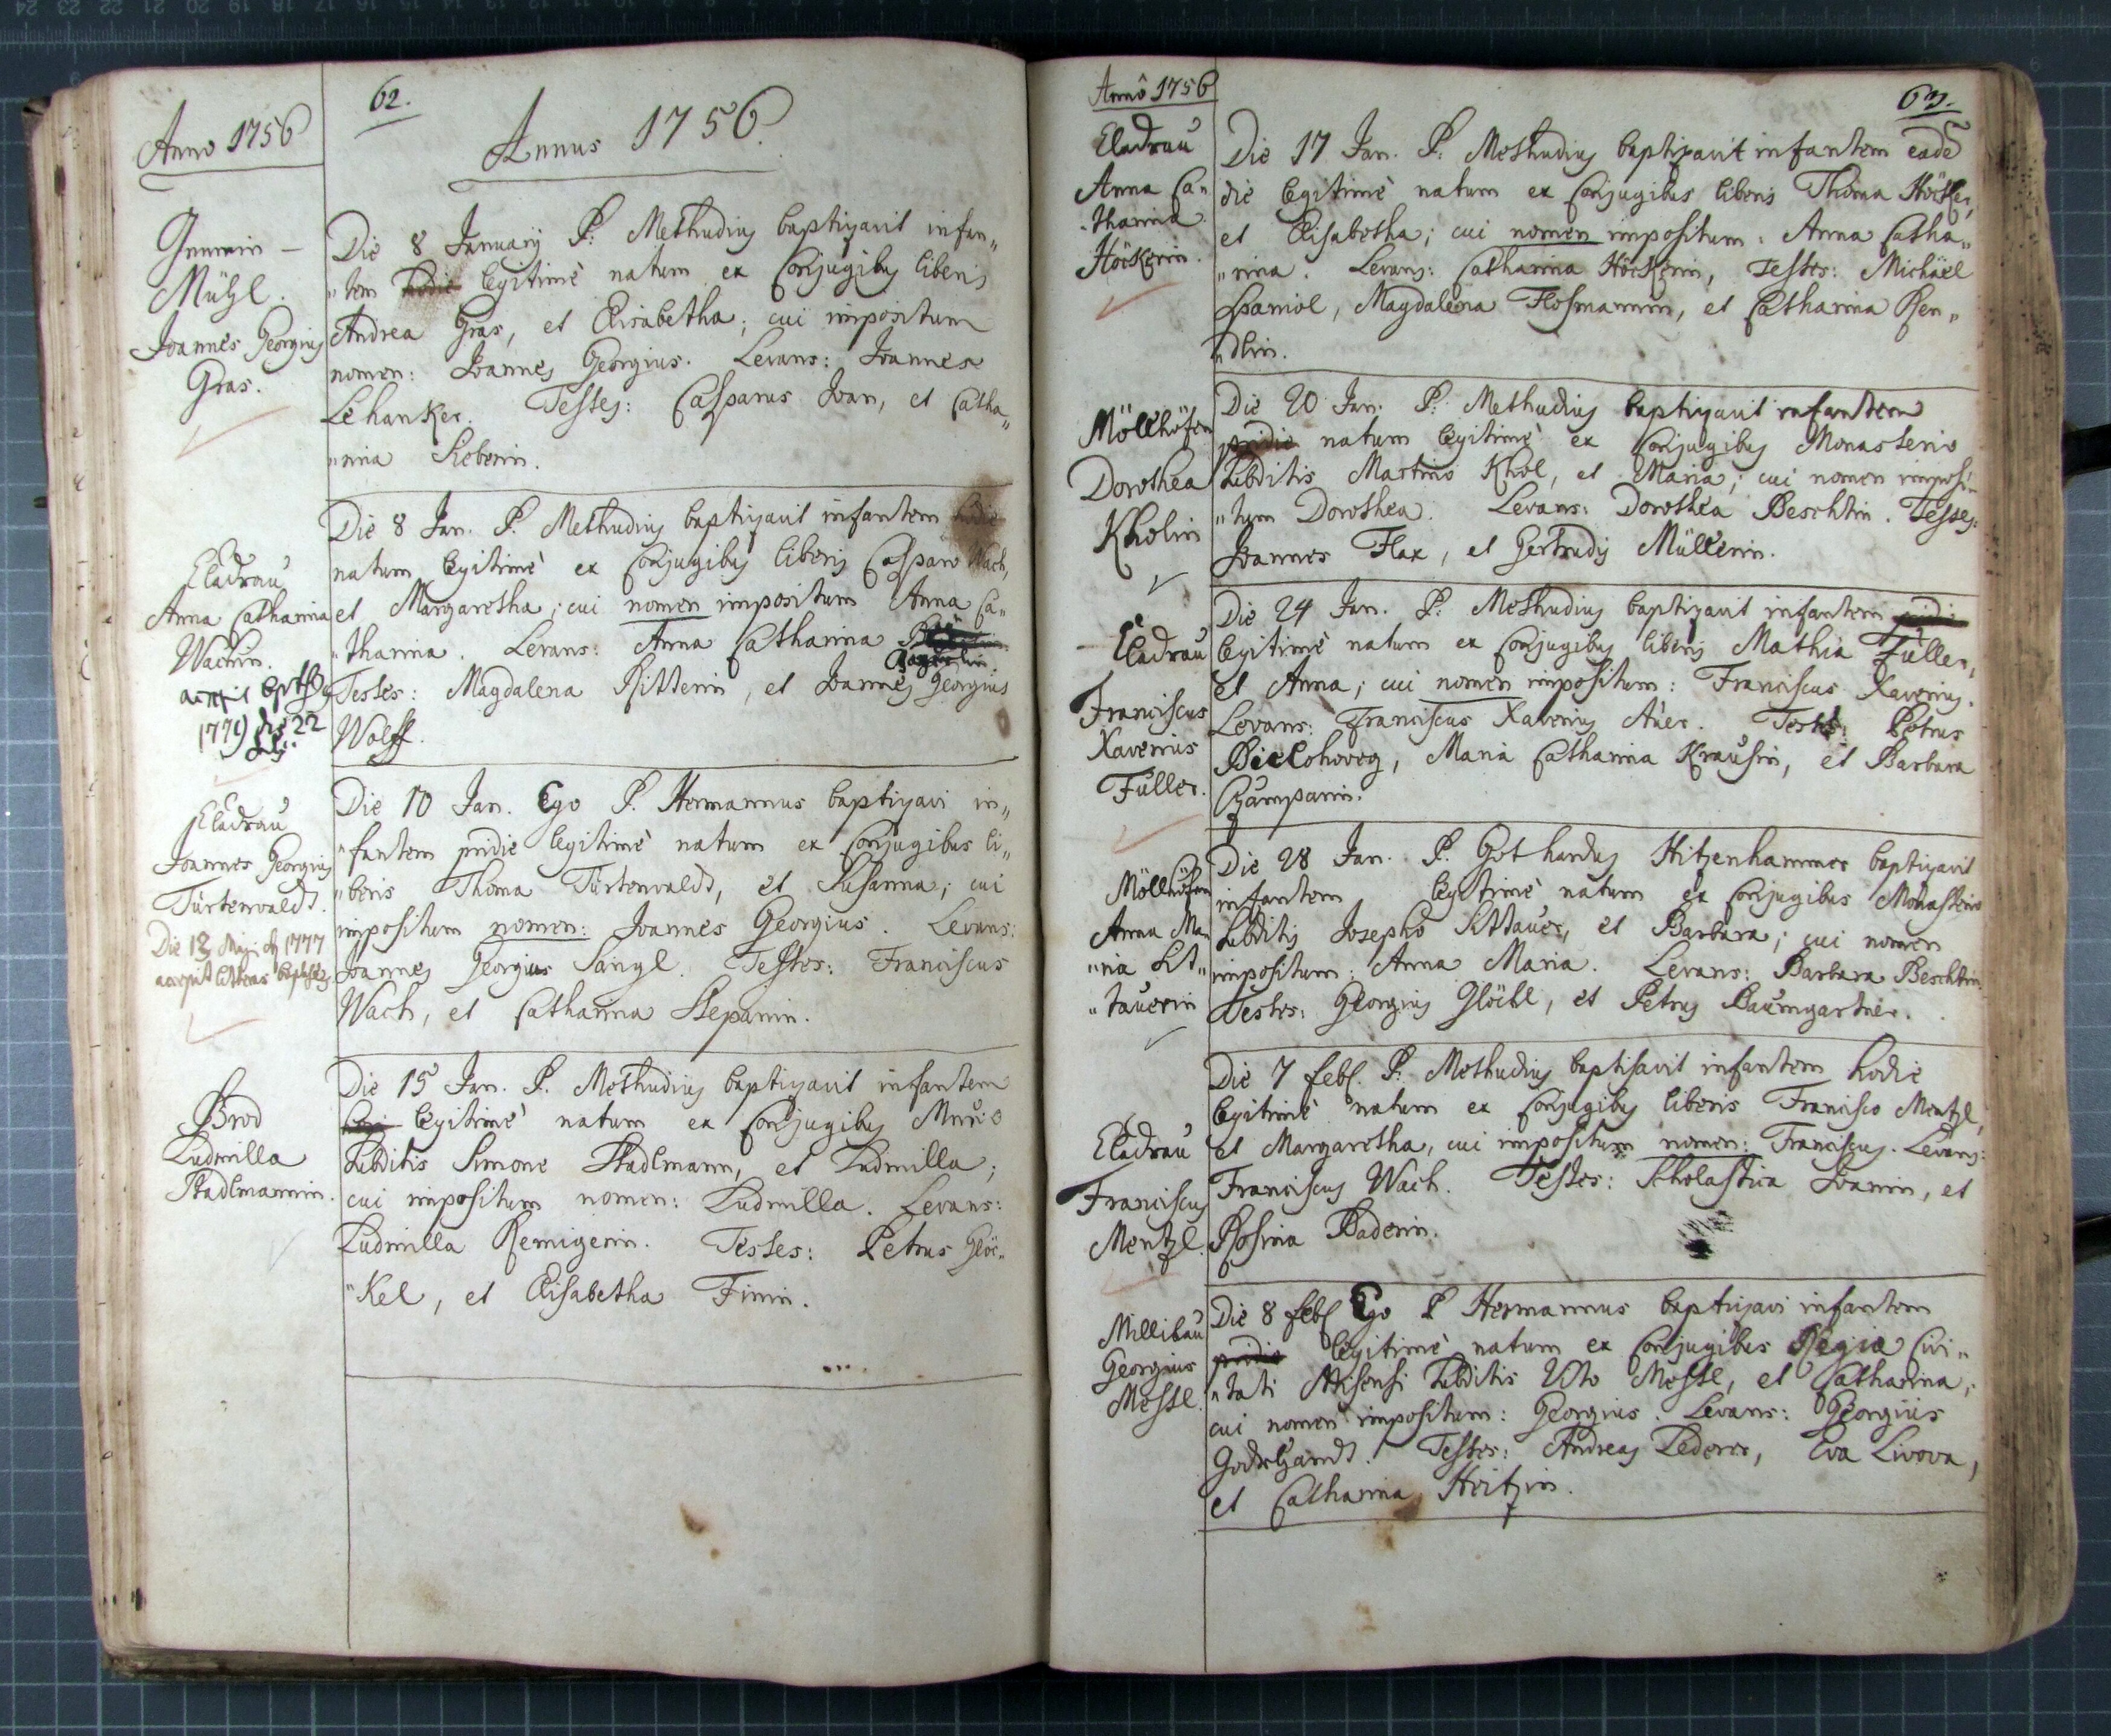 62.
Anno 1756
Annus 1756.
Mühl.
Joannes Georgius
Gras.
Die 8 January P: Methudius baptizavit infan„
„tem hodie legitimè natum ex Conjugibus liberis
Andrea Gras, et Elisabetha; cui impositum
nomen: Joannes Georgius. Levans: Joannes
Lehanker. Testes: Casparus Ivan, et Catha„
„rina
Cladrau
Anna Catharina
Wachin.
1779 die 22
Die 8 Jan. P. Methudius baptizavit infantem hodie
natum legitimè ex Conjugibus liberis Casparo Wach,
et Margaretha; cui nomen impositum Anna Ca„
„tharina. Levans: Anna Catharina
Testes: Magdalena Ritterin, et Joannes Georgius
Wolff.
Cladrau
Joannes Georgius
Türtenvaldt.
Die 13 Maji 1777
accepit litteras
Die 10 Jan. Ego P. Hermannus baptizavi in„
„fantem pridie legitimè natum ex Conjugibus li„
„beris Thoma Türtenvaldt, et Susanna; cui
impositum nomen: Joannes Georgius. Levans:
Joannes Georgius Saingl. Testes: Franciscus
Wach, et Catharina Stepanin.
Brod
Ludmilla
Stadlmannin.
Die 15 Jan. P. Methudius baptizavit infantem
legitimè natum ex Conjugibus
Subditis Simone Stadlmann, et Ludmilla;
cui impositum nomen: Ludmilla. Levans:
Ludmilla Remigerin. Testes: Petrus Glöc„
„kel, et Elisabetha Finin.
63.
Anno 1756
Cladrau
Anna Ca„
„tharina
Höckerin.
Die 17 Jan. P: Methudius baptizavit infantem eadē
die legitimè natum ex Conjugibus liberis Thoma Höcker,
et Elisabetha; cui nomen impositum: Anna Catha„
„rina. Levans: Catharina Höckerin, Testes: Michäel
Spaniol, Magdalena Hosmannin, et Catharina Ren„
„dlin.
Möllhöfen
Dorothea
Kholin
Die 20 Jan. P: Methudius baptizavit infantem
pridie natum legitimè ex Conjugibus Monasterio
Subditis Martino Khol, et Maria; cui nomen imposi„
„tum Dorothea. Levans: Dorothea Beschtin. Testes:
Joannes Flax, et Gertrudis Müllerin.
Cladrau
Franciscus
Xaverius
Füller.
Die 24 Jan. P: Methudius baptizavit infantem pridie
legitimè natum ex Conjugibus liberis Mathia Füller,
et Anna; cui nomen impositum: Franciscus Xaverius.
Levans: Franciscus Xaverius Auer. Testes: Petrus
Bielohoveg, Maria Catharina Krausin, et Barbara
Czampanin.
Möllhöfen
Anna Ma„
„ria Sit„
„tauerin
Die 28 Jan. P. Gothardus Hitzenhammer baptizavit
infantem legitimè natum ex Conjugibus Monasterio
Subditis Josepho Sittauer, et Barbara; cui nomen
impositum: Anna Maria. Levans: Barbara Beschtin
Testes: Georgius Glöckl, et Petrus Baumgartner.
Cladrau
Franciscus
Mentzl.
Die 7 feb. P: Methudius baptisavit infantem hodie
legitimè natum ex Conjugibus liberis Francisco Mentzl,
et Margaretha, cui impositum nomen: Franciscus. Levans:
Franciscus Wach. Testes: Scholastica Ivanin, et
Rosina Baderin.
Millikau
Georgius
Messl.
Die 8 feb Ego P Hermannus baptizavi infantem
pridie legitimè natum ex Conjugibus Regiæ Civi„
„tati Misensi Subditis Vito Messl, et Catharina;
cui nomen impositum: Georgius. Levans: Georgius
Testes: Andreas Lederer, Eva Livova,
et Catharina Heitzin.